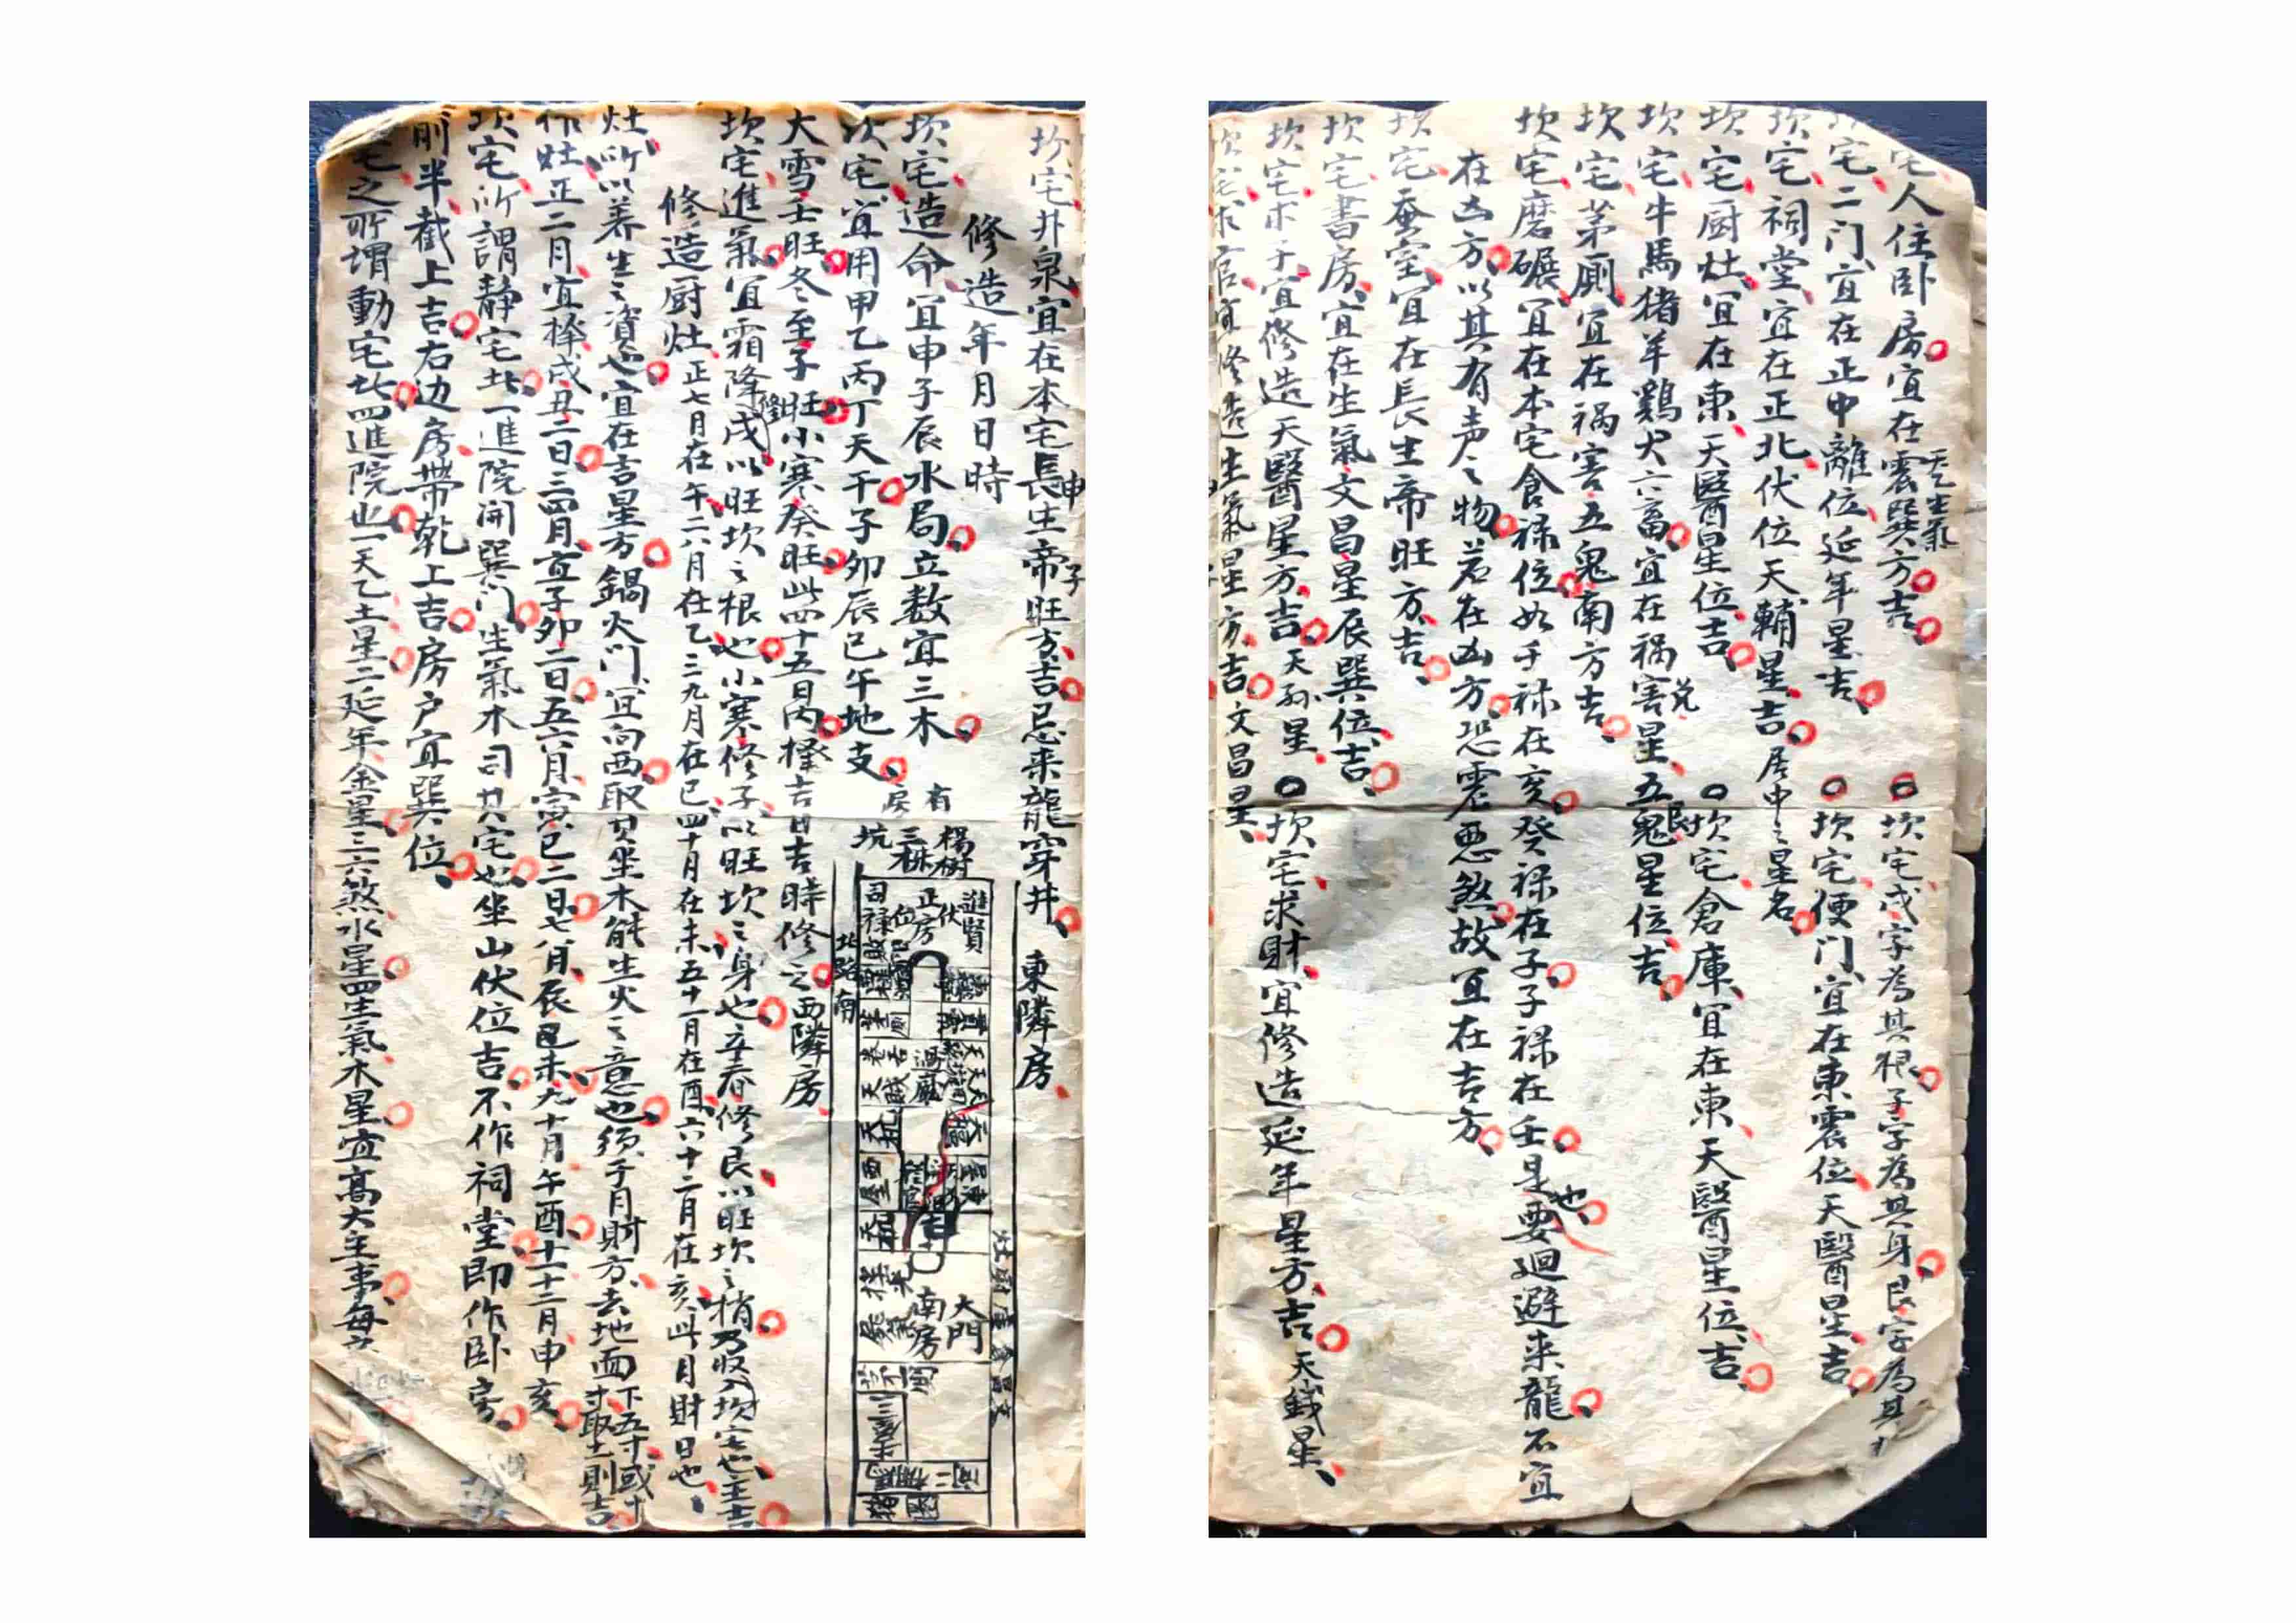 宅人住卧房宜在震巽方吉
天乙生氣
坎宅戌字為其根子字為其身艮字為其
宅二门宜在正中離位延年星吉
坎宅便门宜在東震位天醫星吉
坎宅祠堂宜在正北伏位天輔星吉居中之星名
坎宅厨灶宜在東天醫星位吉
坎宅倉庫宜在東天醫星位吉
坎宅牛馬猪羊鷄犬六畜宜在禍害星五鬼星位吉
兑
艮
坎宅茅厠宜在禍害五鬼南方吉
坎宅磨碾宜在本宅食禄位如壬禄在亥癸禄在子子禄在壬是也要廻避来龍不宜
在凶方以其有声之物若在凶方恐震惡煞故宜在吉方
坎宅蚕室宜在長生帝旺方吉
坎宅書房宜在生氣文昌星辰巽位吉
坎宅求子宜修造天醫星方吉天孙星
坎宅求財宜修造延年星方吉天錢星
坎宅求官宜修造生氣星方吉文昌星
坎宅井泉宜在本宅長生帝旺方吉忌来龍穿井
申
子
東隣房
修造年月日時
坎宅造命宜申子辰水局立数宜三木
坎宅宜用甲乙丙丁天干子卯辰巳午地支
大雪壬旺冬至子旺小寒癸旺此四十五日内擇吉日吉時修之
西隣房
坎宅進氣宜霜降修戌以旺坎之根也小寒修子以旺坎之身也立春修艮以旺坎之梢乃收入坎宅也主吉
修造厨灶正七月在午二八月在乙三九月在巳四十月在未五十一月在酉六十二月在亥此月財日也
灶所以养生之資也宜在吉星方鍋火门宜向西取其坐木能生火之意也须于月財方去地面下五寸或十寸取土則吉
作灶正二月宜擇戌丑二日三四月宜子卯二日五六月寅巳二日七八月辰未九十月午酉十一十二月申亥
坎宅所謂静宅此一進院開巽门生氣木司其宅也坐山伏位吉不作祠堂即作卧房
前半截上吉右边房帶乾上吉房户宜巽位
宅之所謂動宅此四進院也一天乙土星二延年金星三六煞水星四生氣木星宜高大主事每
有
房
楊樹
三株
坑
北路南
進賢
正房
伏位
司禄
茅厠
東屋
西屋
大門
南房
猪圈